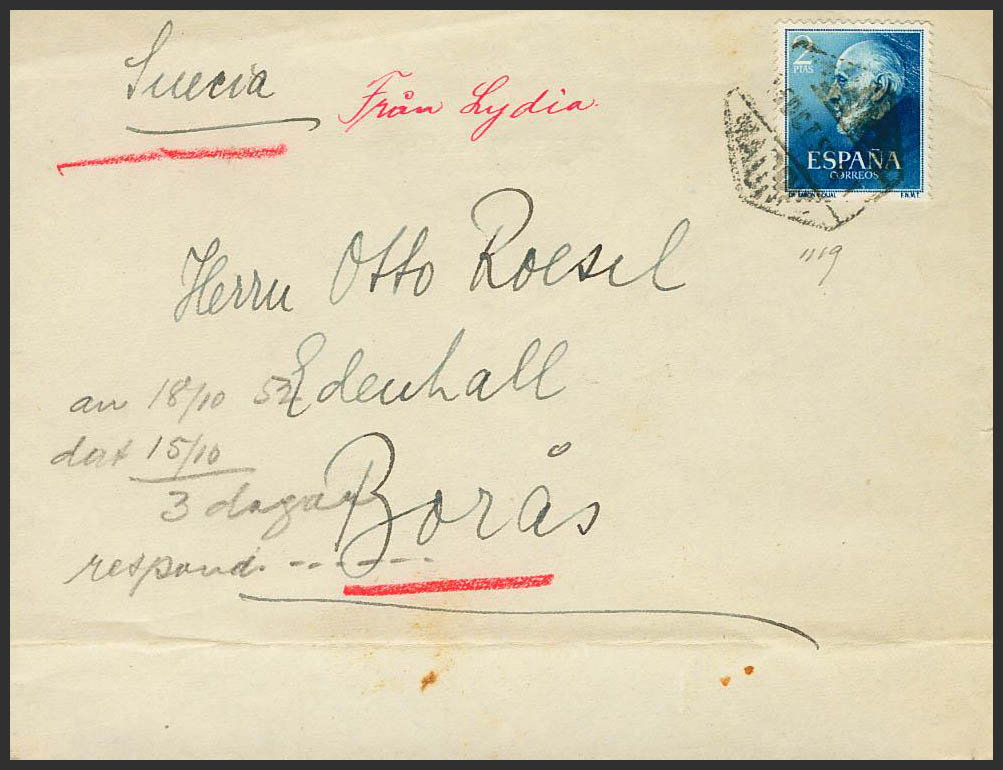 Suecia
Från Lydia
2
PTAS
ESPAÑA
CORREOS
F.N.M.T.
1119
Herrn Otto Roesel
Edenhall
Borås
an 18/10 52
dat 15/10
3 dagar
respond. -----